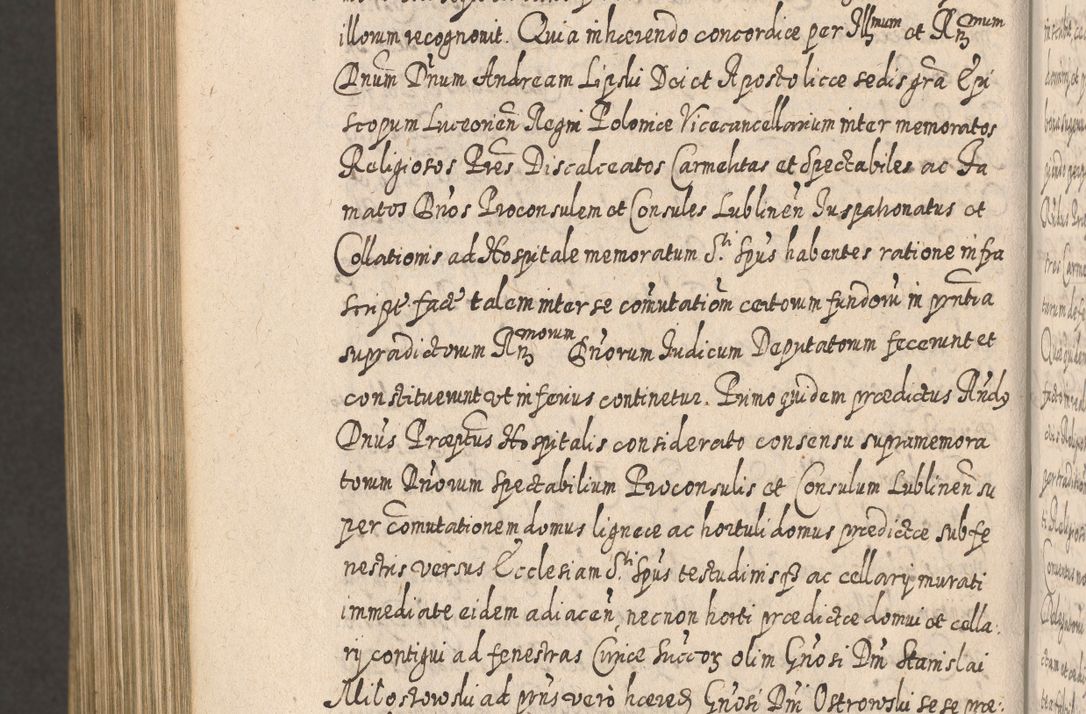 illorum recognovit. Quia inhærendo concordiæ per Illmum et Rndmum
Dnum Dnum Andream Lipski Dei et Apostolicæ sedis grã Epi
scopum Luceorien̄ Regni Poloniæ Vicecancellarium inter memoratos
Religiosos Pres Discalceatos Carmelitas et Spectabiles ac Fa
matos Dnos Proconsulem et Consules Lublinen̄ Juspatronatus et
Collationis ad Hospitale memoratum Sti Spus habentes ratione infra
script factæ talem inter se com̄utatiom̄ certorum fundorū in prn̄tia
supradictorum Rndmorum Dnorum Judicum Deputatorum fecerunt et
constituerunt ut inferius continetur. Primo quidem prædictus Rndus
Dnus Præptus Hospitalis considerato consensu supramemora
torum Dnorum Spectabilium Proconsulis et Consulum Lublinen̄ su
per com̄utationem domus ligneæ ac hortuli domus prædictæ sub fe
nestris versus Ecclesiam Sti Spus testudinisq ac cellarij murati
immediate eidem adiacen̄ necnon horti prædictæ domui et cella-
rij contigui ad fenestras Curiæ Succor olim Gnosi Dni Stanislai
Milostowski ad prns vero hæred Gnosi Dni Ostrowski se se præ-